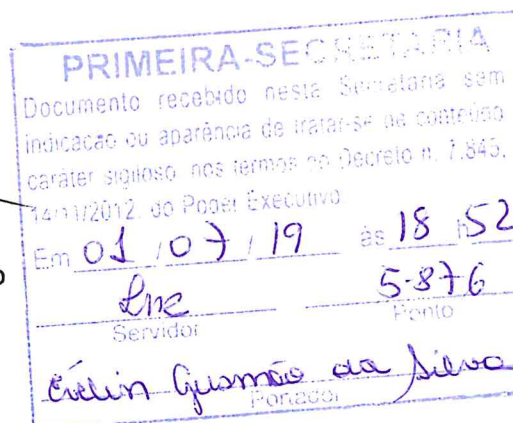 PRIMEIRA-SECRETARIA
Documento recebido nesta Secretaria sem
indicação ou aparência de tratar-se de conteúdo
caráter sigiloso, nos termos do Decreto n. 7.845,
14/11/2012, do Poder Executivo.
Em 01 / 07 / 19 às 18 h 52
5-876
Servidor Ponto
Evelin Gusmão da Silva
Portador